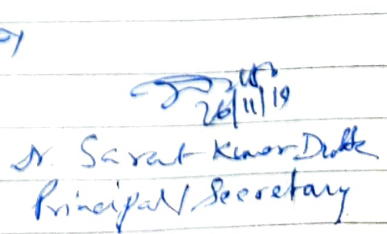 26/11/19
Dr. Sarat Kumar Dutta
Principal Secretary